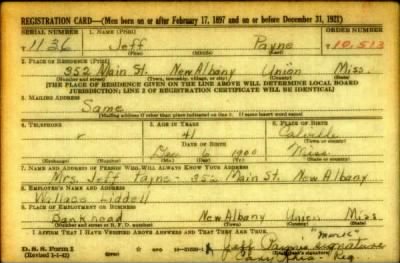 REGISTRATION CARD—(Men born on or after February 17, 1897 and on or before December 31, 1921)
SERIAL NUMBER 1. NAME (Print) ORDER NUMBER
1136 Jeff Payne 10,513
(First) (Middle) (Last)
2. PLACE OF RESIDENCE (Print)
352 Main St. New Albany Union Miss.
(Number and street) (Town, township, village, or city) (County) (State)
[THE PLACE OF RESIDENCE GIVEN ON THE LINE ABOVE WILL DETERMINE LOCAL BOARD
JURISDICTION; LINE 2 OF REGISTRATION CERTIFICATE WILL BE IDENTICAL]
3. MAILING ADDRESS
Same
[Mailing address if other than place indicated on line 2. If same insert word same]
4. TELEPHONE 5. AGE IN YEARS 6. PLACE OF BIRTH
41
DATE OF BIRTH
Dec 6 1900 Miss
(Exchange) (Number) (Mo.) (Day) (Yr.) (State or country)
7. NAME AND ADDRESS OF PERSON WHO WILL ALWAYS KNOW YOUR ADDRESS
Mrs. Jeff Payne - 352 Main St. New Albany
8. EMPLOYER'S NAME AND ADDRESS
Wallace Liddell
9. PLACE OF EMPLOYMENT OR BUSINESS
Bankhead New Albany Union Miss
(Number and street or R. F. D. number) (Town) (County) (State)
I AFFIRM THAT I HAVE VERIFIED ABOVE ANSWERS AND THAT THEY ARE TRUE.
D. S. S. Form 1
(Revised 1-1-42) Jeff Payne signature